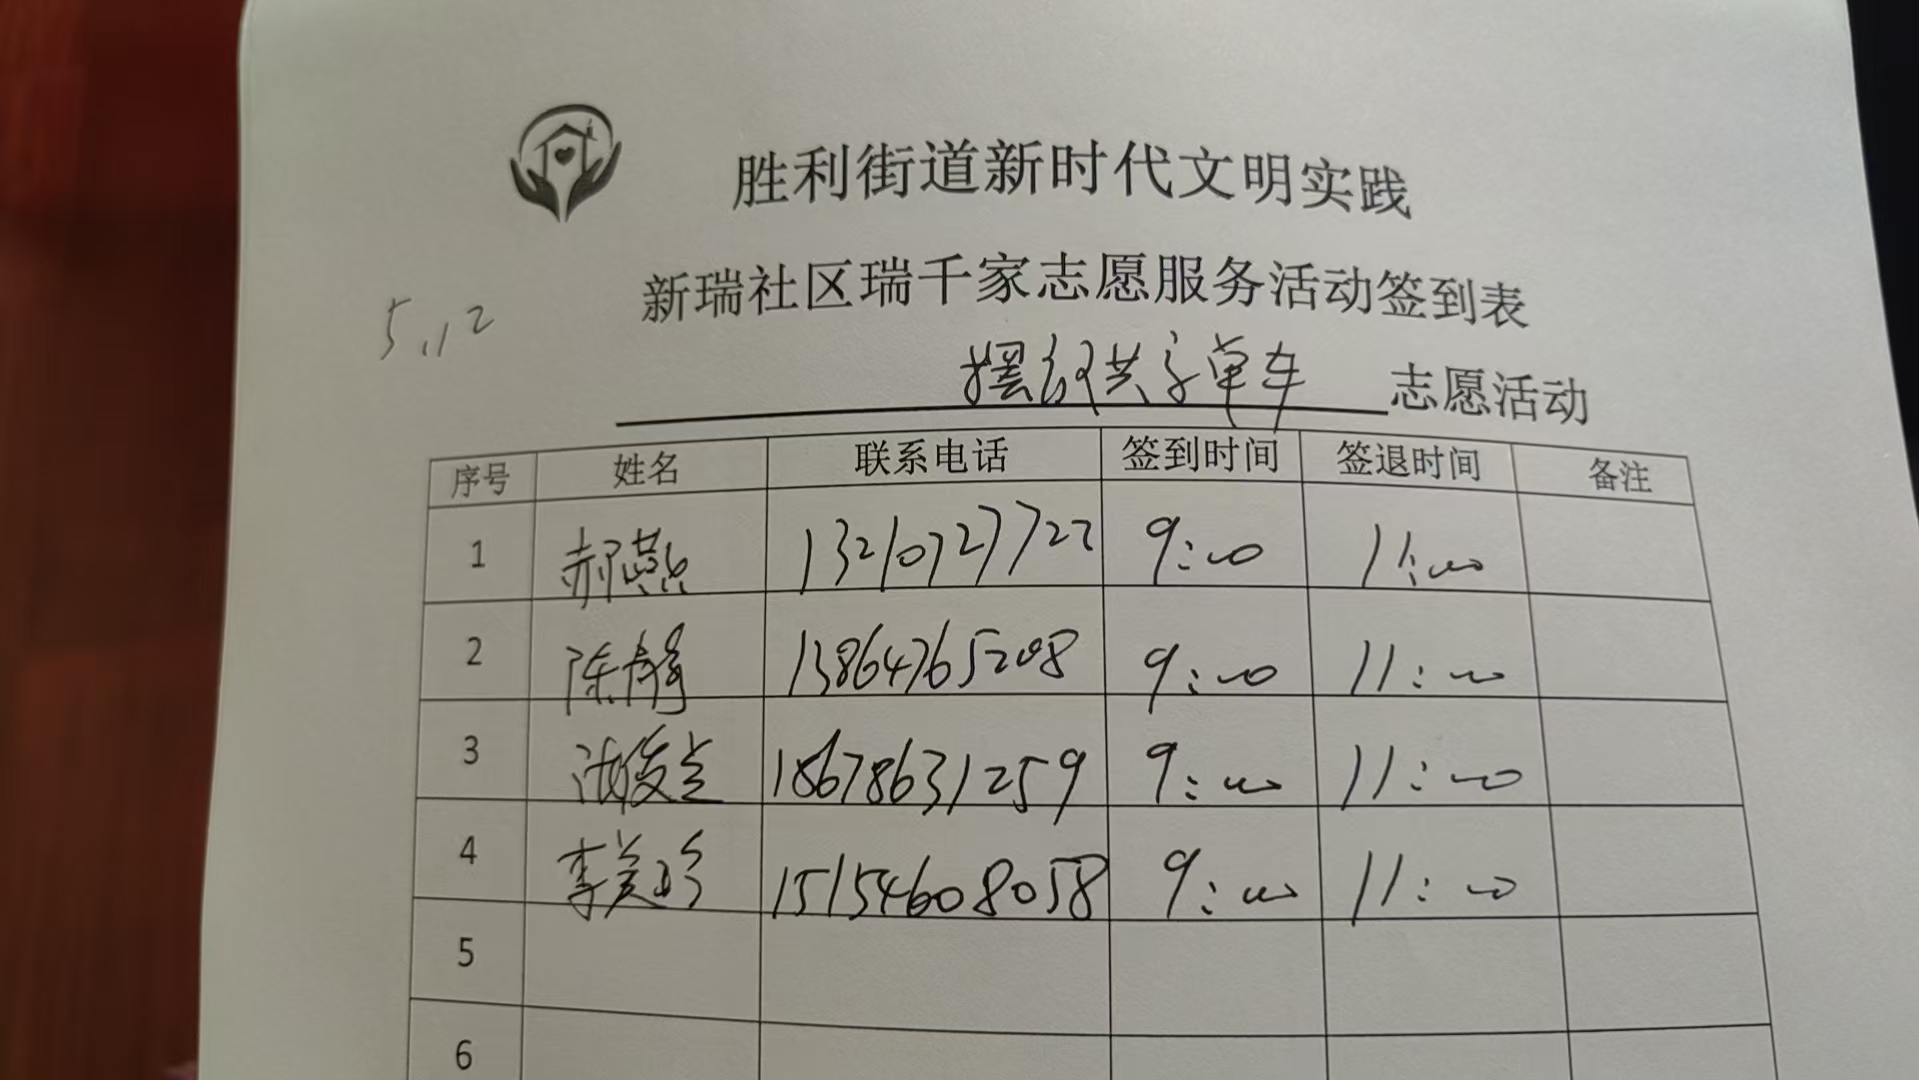 胜利街道新时代文明实践
新瑞社区瑞千家志愿服务活动签到表
5.12
摆放共享单车 志愿活动
序号 姓名 联系电话 签到时间 签退时间 备注
1 郝燕 13210727722 9:00 11:00
2 陈静 13864765208 9:00 11:00
3 18678631259 9:00 11:00
4 李美珍 15154608058 9:00 11:00
5
6